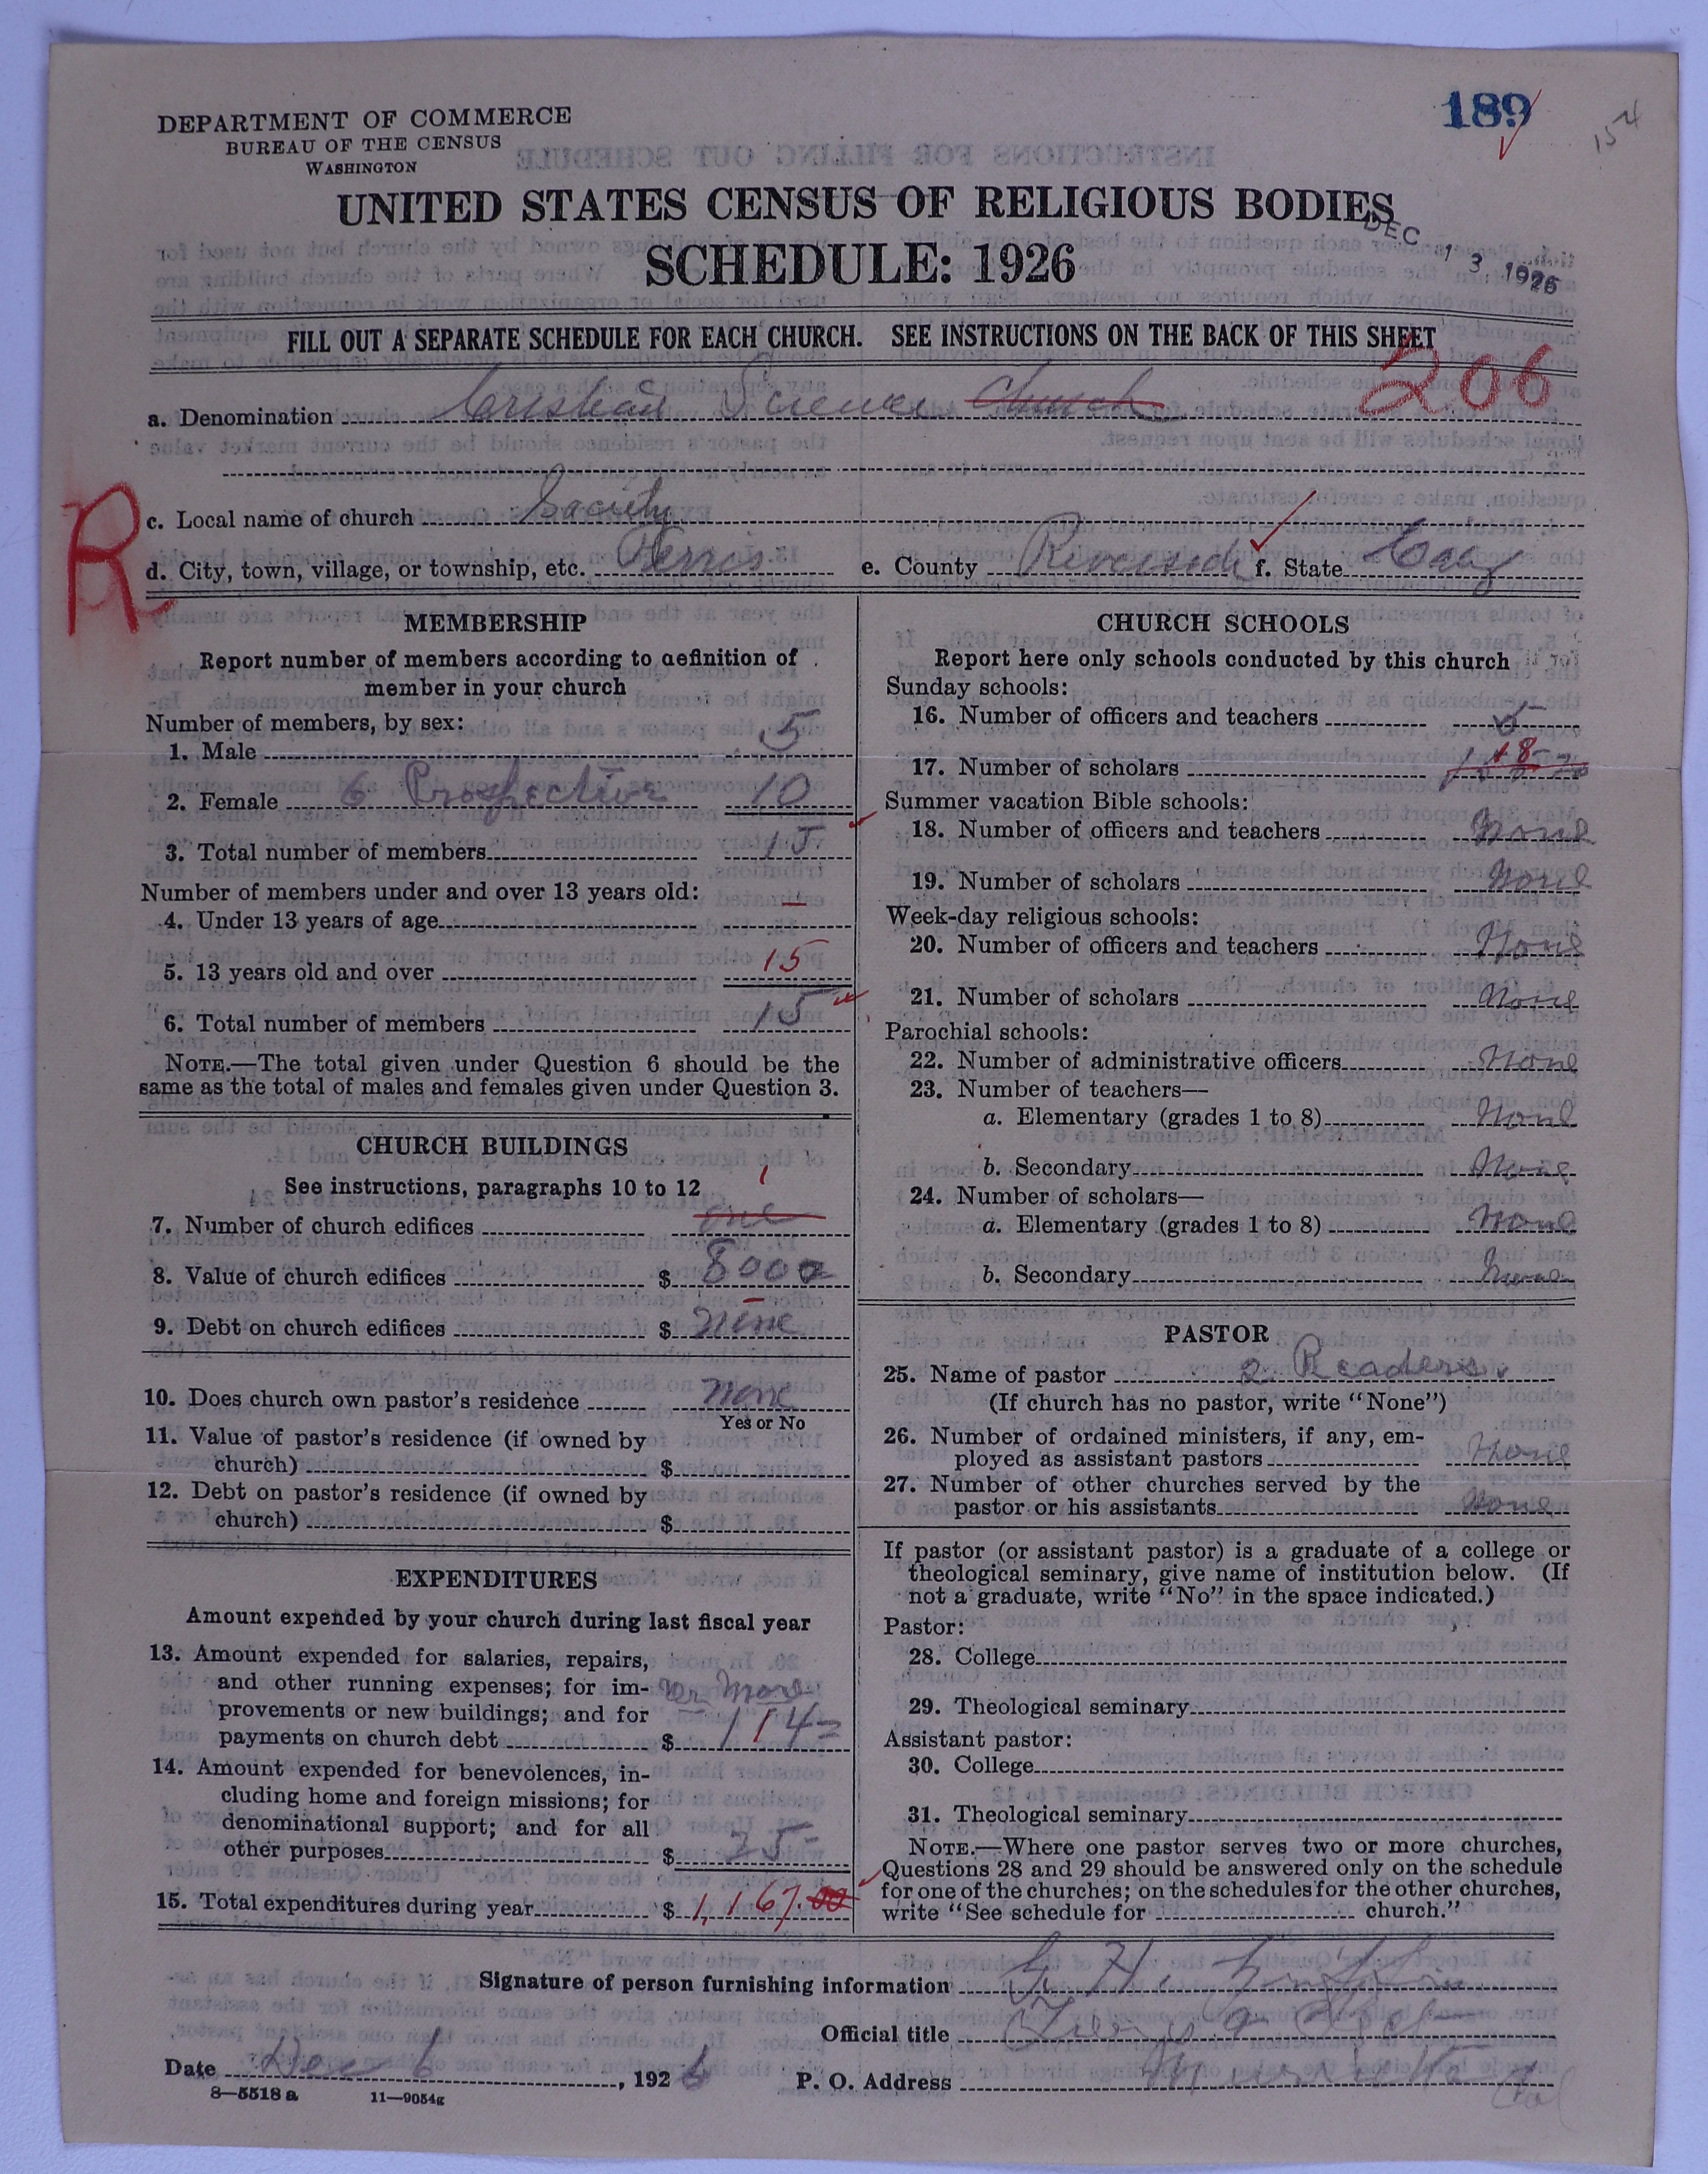 189
154
DEPARTMENT OF COMMERCE
BUREAU OF THE CENSUS
WASHINGTON
UNITED STATES CENSUS OF RELIGIOUS BODIES
SCHEDULE: 1926
DEC 13 1926
FILL OUT A SEPARATE SCHEDULE FOR EACH CHURCH. SEE INSTRUCTIONS ON THE BACK OF THIS SHEET
206
a. Denomination Christian Science Church
R
c. Local name of church Society
d. City, town, village, or township, etc. Perris e. County Riverside f. State
MEMBERSHIP
Report number of members according to definition of
member in your church
Number of members, by sex:
1. Male 5
2. Female 6 Prospective 10
3. Total number of members 15
Number of members under and over 13 years old:
4. Under 13 years of age –
5. 13 years old and over 15
6. Total number of members 15
NOTE.—The total given under Question 6 should be the
same as the total of males and females given under Question 3.
CHURCH BUILDINGS
See instructions, paragraphs 10 to 12
1
7. Number of church edifices one
8. Value of church edifices $ 8000
9. Debt on church edifices $ None
10. Does church own pastor's residence None
Yes or No
11. Value of pastor's residence (if owned by
church) $
12. Debt on pastor's residence (if owned by
church) $
EXPENDITURES
Amount expended by your church during last fiscal year
13. Amount expended for salaries, repairs,
and other running expenses; for im-
provements or new buildings; and for or more
payments on church debt $
14. Amount expended for benevolences, in-
cluding home and foreign missions; for
denominational support; and for all
other purposes $
15. Total expenditures during year $ 1,167.00
CHURCH SCHOOLS
Report here only schools conducted by this church
Sunday schools:
16. Number of officers and teachers 5
17. Number of scholars 18
Summer vacation Bible schools:
18. Number of officers and teachers None
19. Number of scholars None
Week-day religious schools:
20. Number of officers and teachers None
21. Number of scholars None
Parochial schools:
22. Number of administrative officers None
23. Number of teachers—
a. Elementary (grades 1 to 8) None
b. Secondary None
24. Number of scholars—
a. Elementary (grades 1 to 8) None
b. Secondary None
PASTOR
25. Name of pastor 2 Readers
(If church has no pastor, write "None")
26. Number of ordained ministers, if any, em-
ployed as assistant pastors None
27. Number of other churches served by the
pastor or his assistants None
If pastor (or assistant pastor) is a graduate of a college or
theological seminary, give name of institution below. (If
not a graduate, write "No" in the space indicated.)
Pastor:
28. College
29. Theological seminary
Assistant pastor:
30. College
31. Theological seminary
NOTE.—Where one pastor serves two or more churches,
Questions 28 and 29 should be answered only on the schedule
for one of the churches; on the schedules for the other churches,
write "See schedule for church."
Signature of person furnishing information
Official title
Date Dec 6, 1926 P. O. Address Murrieta
Cal
8—5518 a 11—9054g